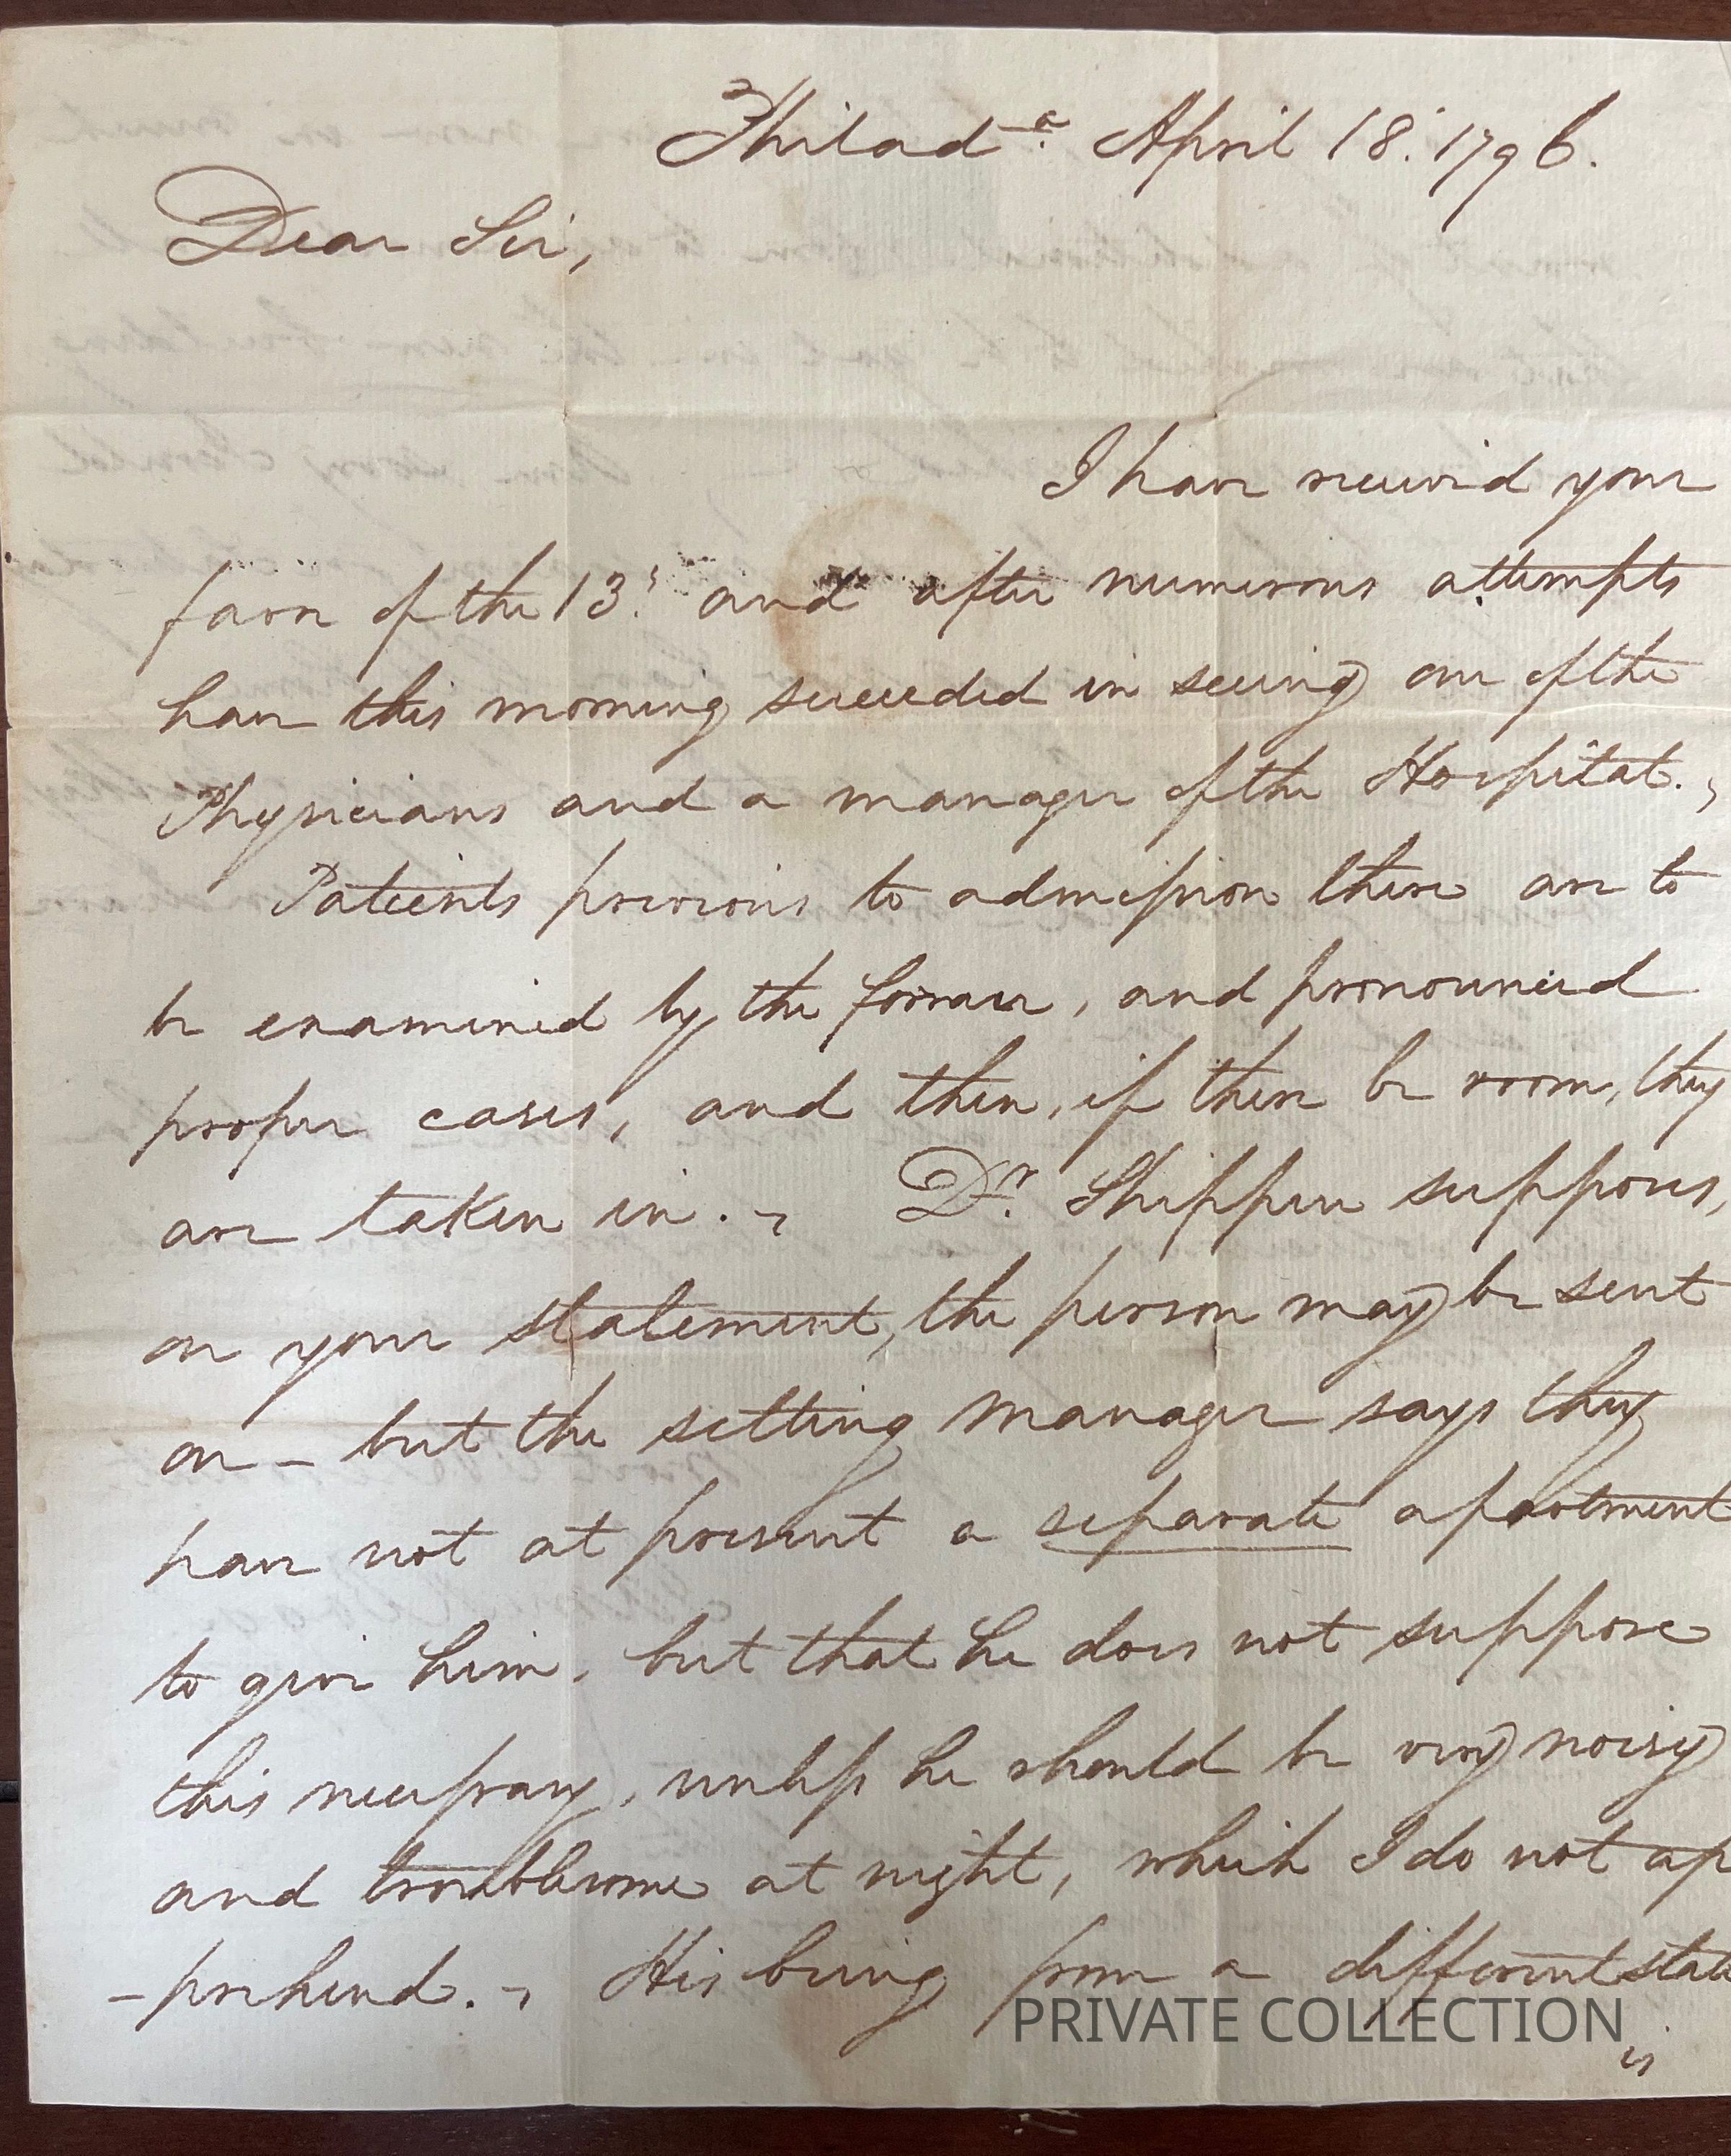 Philad.ª April 18. 1796.
Dear Sir,
I have received your
favor of the 13.' and after numerous attempts
have this morning succeeded in seeing one of the
Physicians and a manager of the Hospital.
Patients previous to admission there are to
be examined by the former, and pronounced
proper cases, and then, if there be room, they
are taken in. - D.r Shippen supposes,
on your statement, the person may be sent
on - but the setting manager says they
have not at present a separate apartment
to give him, but that he does not suppose
this necessary, unless he should be very noisy
and troublesome at night, which I do not ap
-prehend. - His being from a different state
is
PRIVATE COLLECTION